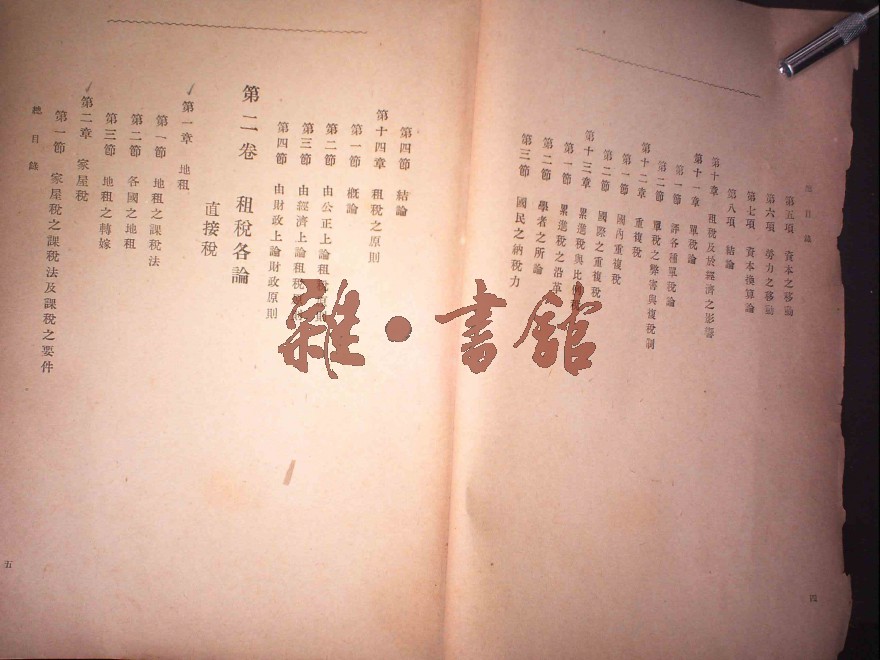 總目錄
第五項 資本之移動
第六項 勞力之移動
第七項 資本換算論
第八項 結論
第十章 租稅及於經濟之影響
第十一章 單稅論
第一節 評各種單稅論
第二節 單稅之弊害與複稅制
第十二章 重複稅
第一節 國內重複稅
第二節 國際之重複稅
第十三章 累進稅
第一節 累進稅之沿革
第二節 學者之所論
第三節 國民之納稅力
四
第四節 結論
第十四章 租稅之原則
第一節 概論
第二節 由公正上論租稅
第三節 由經濟上論租稅
第四節 由財政上論財政原則
第二卷 租稅各論
直接稅
第一章 地租
第一節 地租之課稅法
第二節 各國之地租
第三節 地租之轉嫁
第二章 家屋稅
第一節 家屋稅之課稅法及課稅之要件
總目錄
五
雜·書館